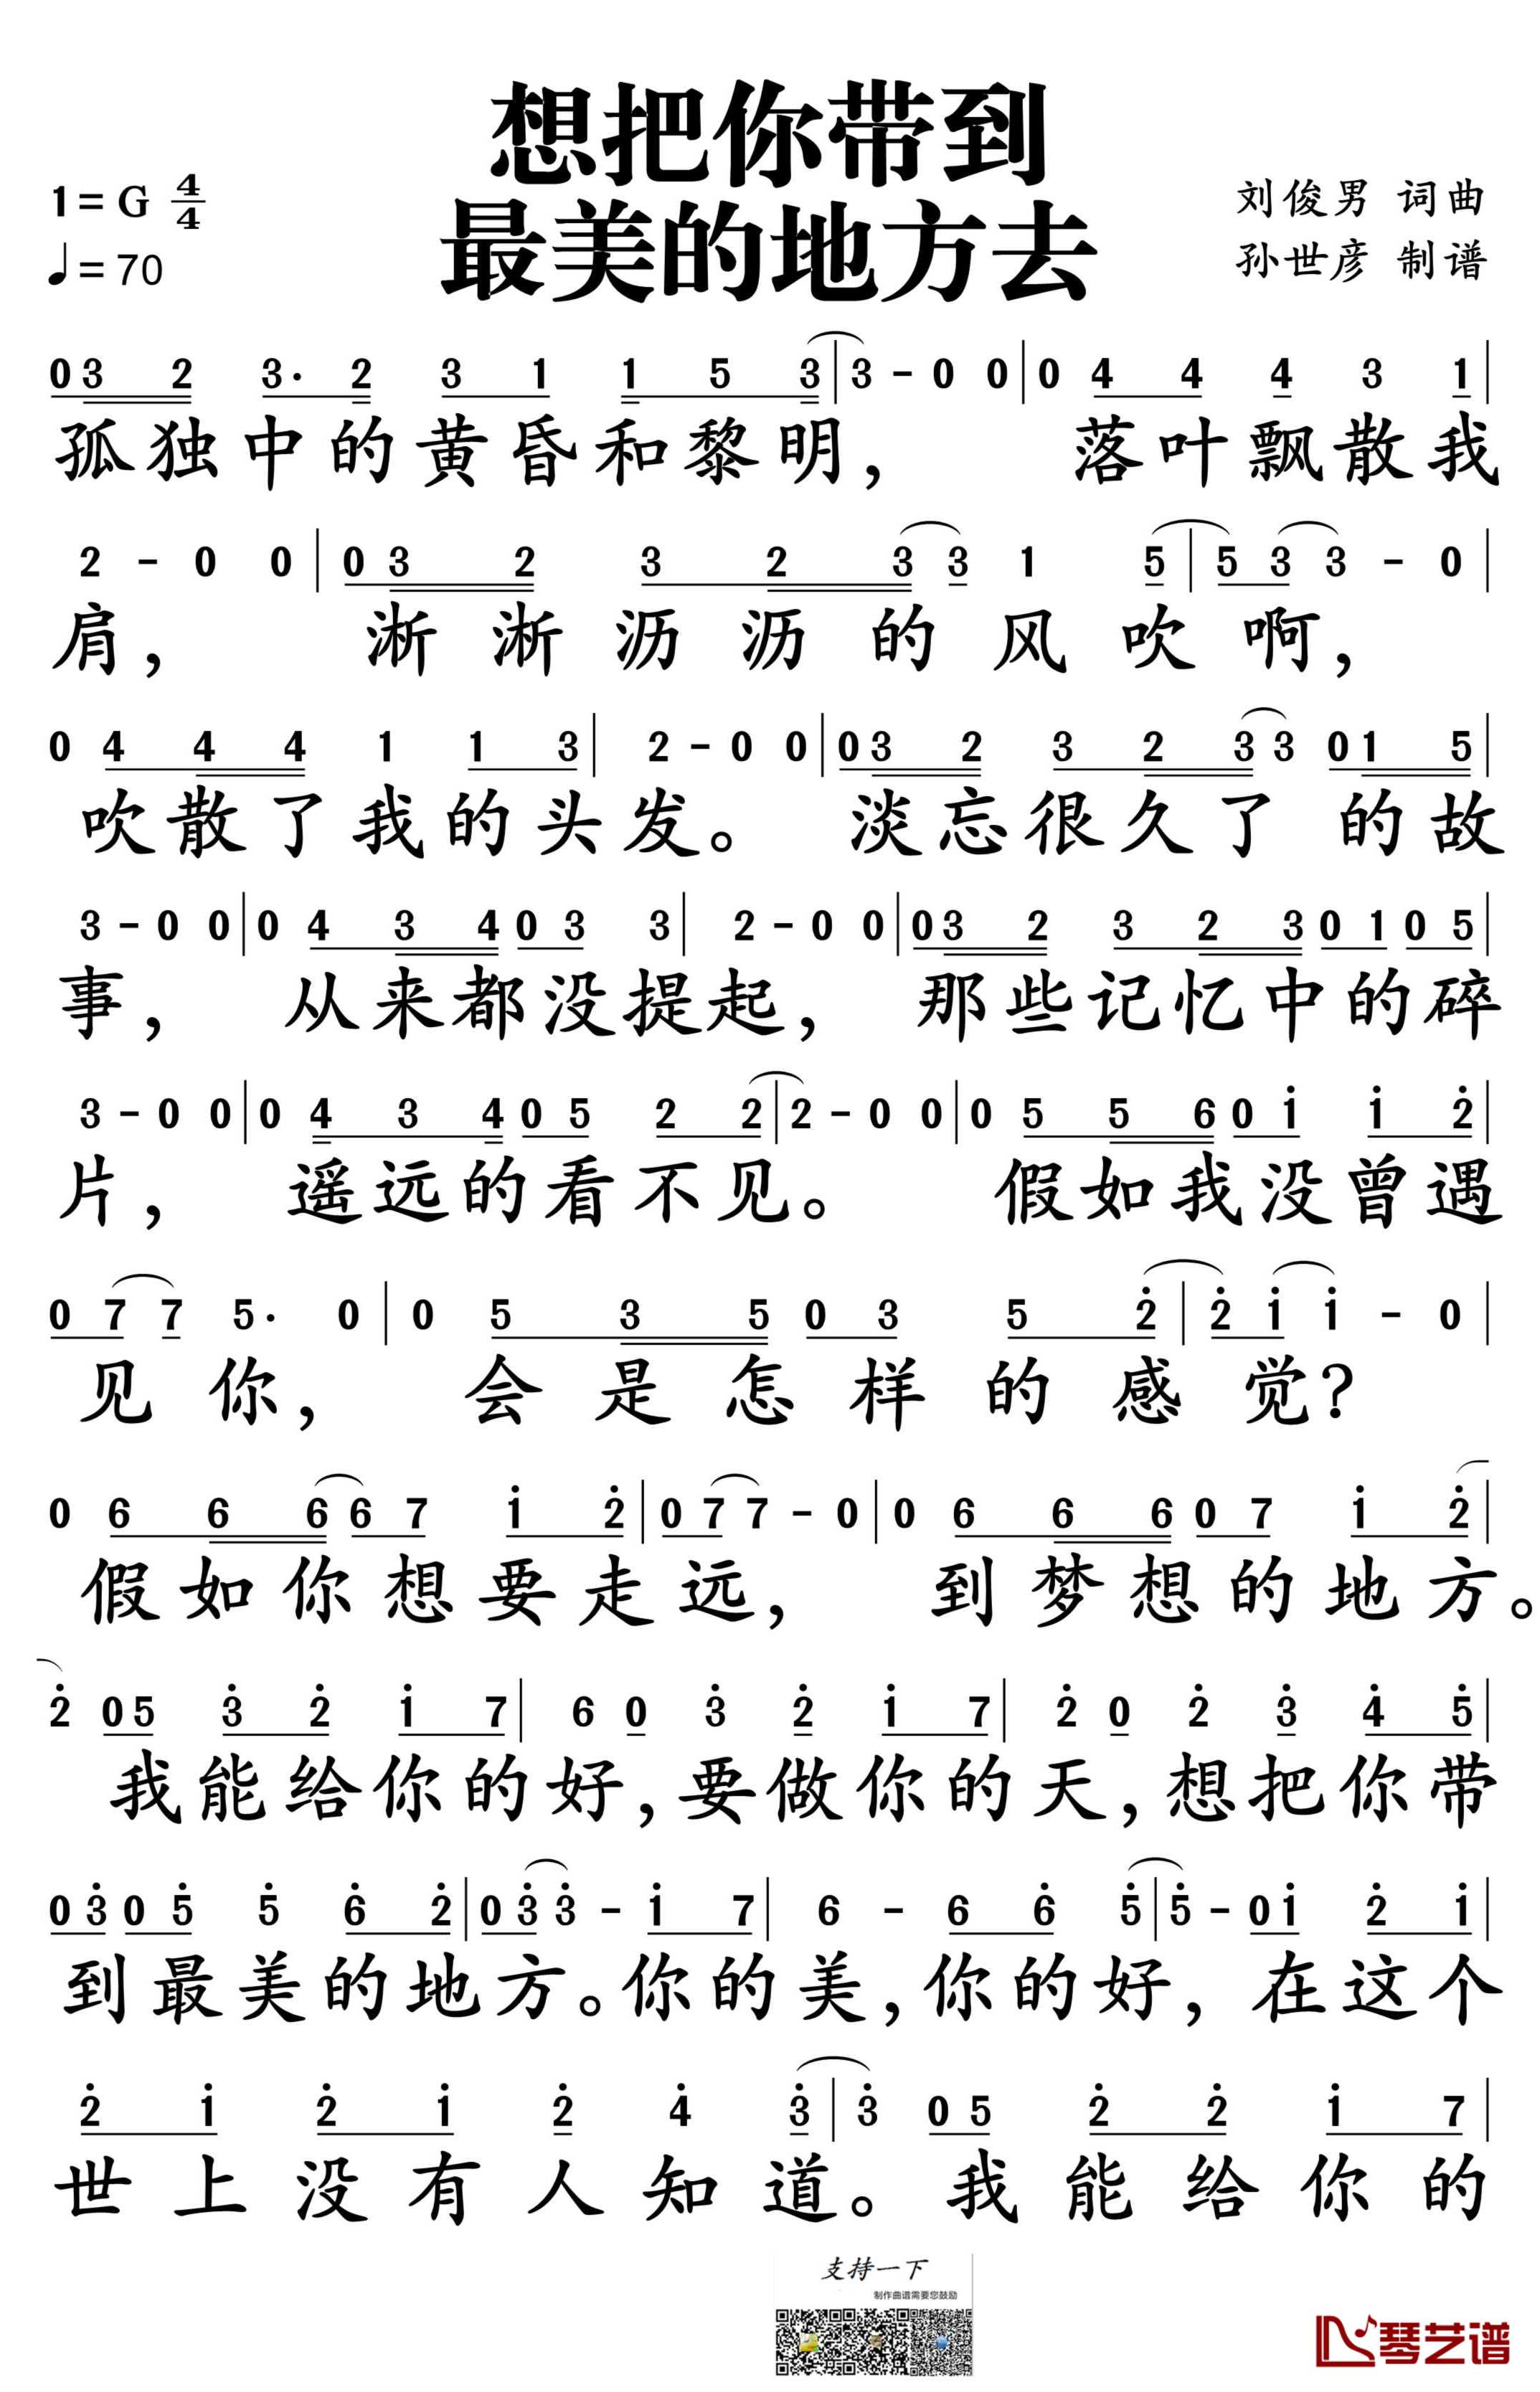 想把你带到
最美的地方去
1=G 4/4
♩=70
刘俊男 词曲
孙世彦 制谱
0 3 2 3· 2 3 1 1 5 3 | 3 - 0 0 | 0 4 4 4 3 1 |
孤独中的黄昏和黎明， 落叶飘散我
2 - 0 0 | 0 3 2 3 2 3 3 1 5 | 5 3 3 - 0 |
肩， 淅淅沥沥的风吹啊，
0 4 4 4 1 1 3 | 2 - 0 0 | 0 3 2 3 2 3 3 0 1 5 |
吹散了我的头发。 淡忘很久了 的故
3 - 0 0 | 0 4 3 4 0 3 3 | 2 - 0 0 | 0 3 2 3 2 3 0 1 0 5 |
事， 从来都没提起， 那些记忆中的碎
3 - 0 0 | 0 4 3 4 0 5 2 2 | 2 - 0 0 | 0 5 5 6 0 1̇ 1̇ 2̇ |
片， 遥远的看不见。 假如我没曾遇
0 7 7 5· 0 | 0 5 3 5 0 3 5 2̇ | 2̇ 1̇ 1̇ - 0 |
见你， 会是怎样的感觉？
0 6 6 6 6 7 1̇ 2̇ | 0 7 7 - 0 | 0 6 6 6 0 7 1̇ 2̇ |
假如你想要走远， 到梦想的地方。
2̇ 0 5 3̇ 2̇ 1̇ 7 | 6 0 3̇ 2̇ 1̇ 7 | 2̇ 0 2̇ 3̇ 4̇ 5̇ |
我能给你的好，要做你的天，想把你带
0 3̇ 0 5̇ 5̇ 6̇ 2̇ | 0 3̇ 3̇ - 1̇ 7 | 6 - 6 6̇ 5̇ | 5̇ - 0 1̇ 2̇ 1̇ |
到最美的地方。你的美，你的好，在这个
2̇ 1̇ 2̇ 1̇ 2̇ 4̇ 3̇ | 3̇ 0 5 2̇ 2̇ 1̇ 7 |
世上没有人知道。我能给你的
支持一下
制作曲谱需要您鼓励
琴艺谱